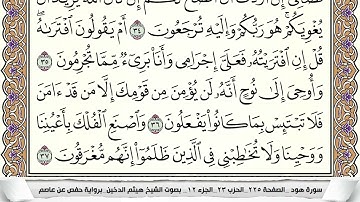 يُغْوِيَكُمْ هُوَ رَبُّكُمْ وَإِلَيْهِ تُرْجَعُونَ ٣٤ أَمْ يَقُولُونَ ٱفْتَرَىٰهُ
قُلْ إِنِ ٱفْتَرَيْتُهُۥ فَعَلَىَّ إِجْرَامِى وَأَنَا۠ بَرِىٓءٌ مِّمَّا تُجْرِمُونَ ٣٥
وَأُوحِىَ إِلَىٰ نُوحٍ أَنَّهُۥ لَن يُؤْمِنَ مِن قَوْمِكَ إِلَّا مَن قَدْ ءَامَنَ
فَلَا تَبْتَئِسْ بِمَا كَانُوا۟ يَفْعَلُونَ ٣٦ وَٱصْنَعِ ٱلْفُلْكَ بِأَعْيُنِنَا
وَوَحْيِنَا وَلَا تُخَٰطِبْنِى فِى ٱلَّذِينَ ظَلَمُوٓا۟ إِنَّهُم مُّغْرَقُونَ ٣٧
سورة هود _ الصفحة ٢٢٥ _ الحزب ٢٣ _ الجزء ١٢ _ بصوت الشيخ هيثم الدخين _ برواية حفص عن عاصم